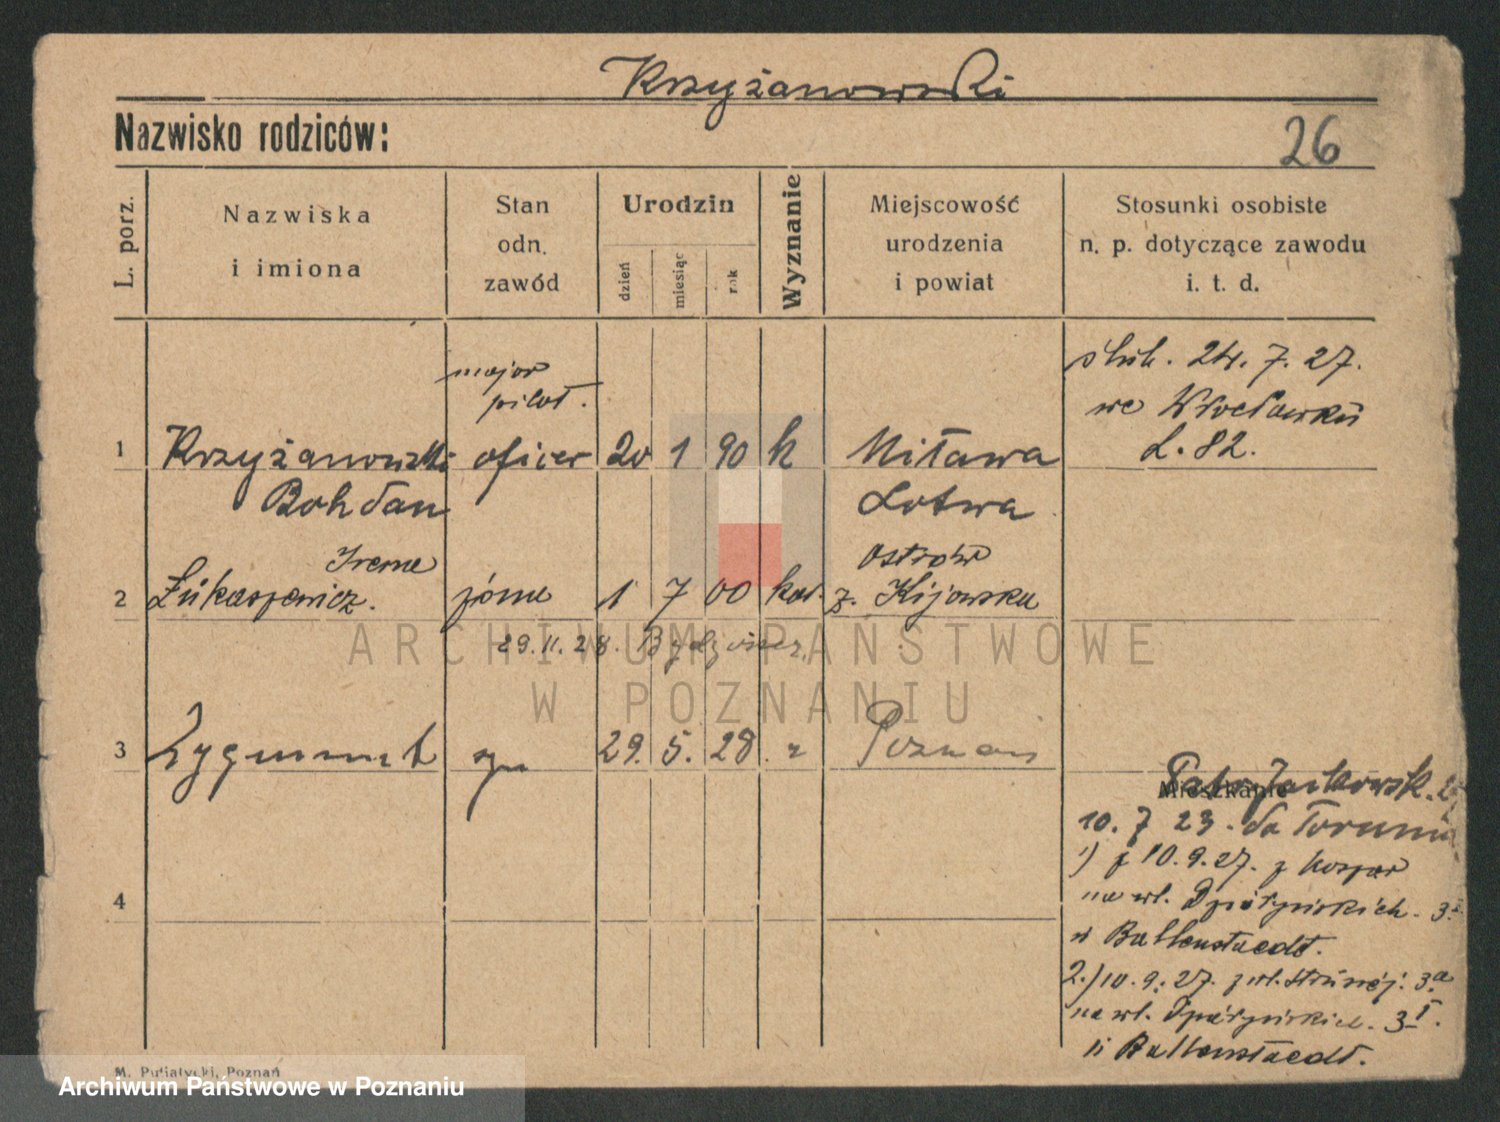 Krzyżanowski
Nazwisko rodziców:
26
L. porz.
Nazwiska
i imiona
Stan
odn.
zawód
Urodzin
dzień
miesiąc
rok
Wyznanie
Miejscowość
urodzenia
i powiat
Stosunki osobiste
n. p. dotyczące zawodu
i. t. d.
major
pilot.
1 Krzyżanowski oficer 20 1 90 k Mitawa
Bohdan Łotwa
ślub. 24. 7. 27.
we Włocławku
L. 82.
Irena Ostrów
2 Łukaszewicz. żona 1 7 00 kat. z. Kijowska
29. 11. 28. Bydgoszcz
3 Zygmunt syn 29. 5. 28 r Poznań
4
Mieszkanie
10. 7 23. do Torunia
1) z 10. 9. 27. z
na ul. 3
u Ballenstaedt.
2.) 10. 9. 27. z ul. 3a
na ul. 3 I.
u Ballenstaedt.
M. Putiatycki, Poznań
ARCHIWUM PAŃSTWOWE
W POZNANIU
Archiwum Państwowe w Poznaniu